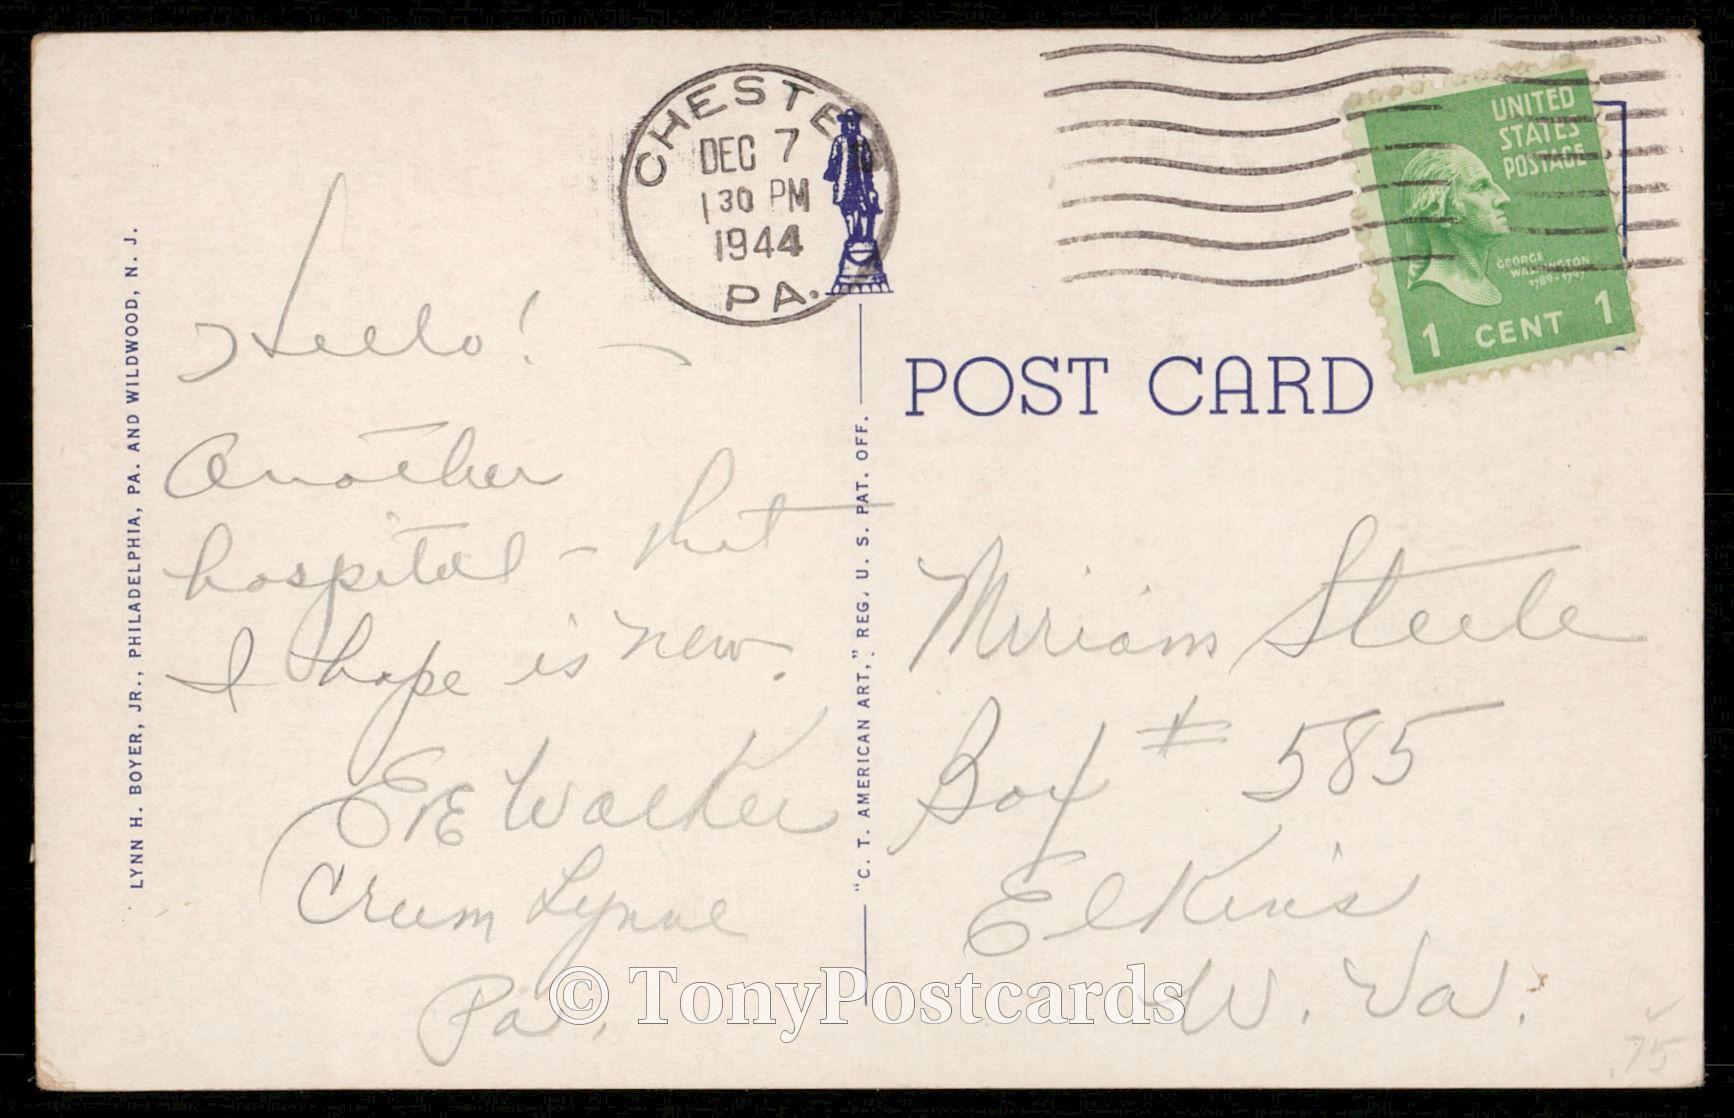 LYNN H. BOYER, JR., PHILADELPHIA, PA. AND WILDWOOD, N. J.
CHESTER
DEC 7
1 30 PM
1944
PA.
UNITED
STATES
POSTAGE
GEORGE
WASHINGTON
1789-1797
1 CENT 1
POST CARD
"C. T. AMERICAN ART," REG. U. S. PAT. OFF.
Hello! –
Another
hospital – that
I hope is new.
Eve Walker
Crum Lynne
Pa.
Miriam Steele
Box # 585
Elkins
W. Va.
© TonyPostcards
.75